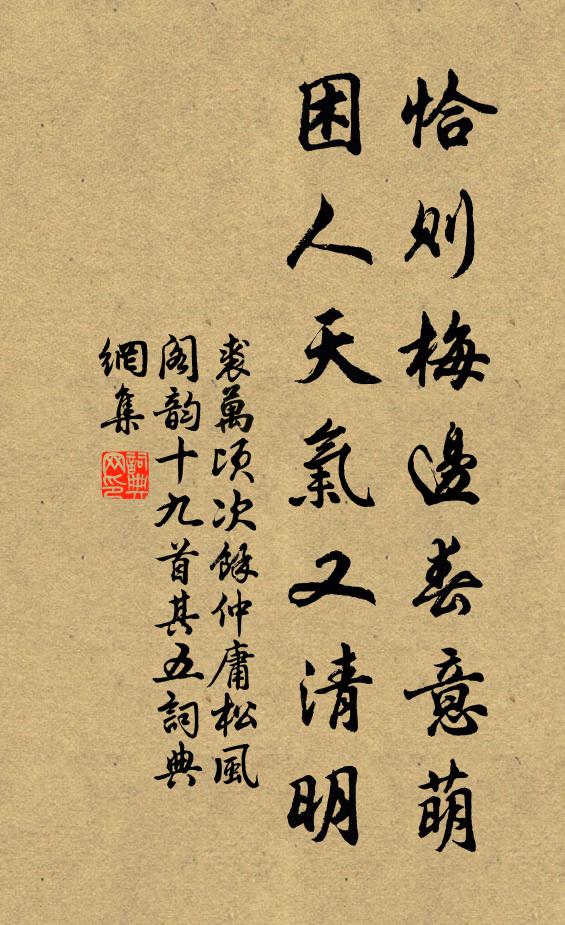 恰則梅邊春意萌
困人天氣又清明
裘萬頃次餘仲庸松風
閣韵十九首其五詞典
網集
詞典
网印